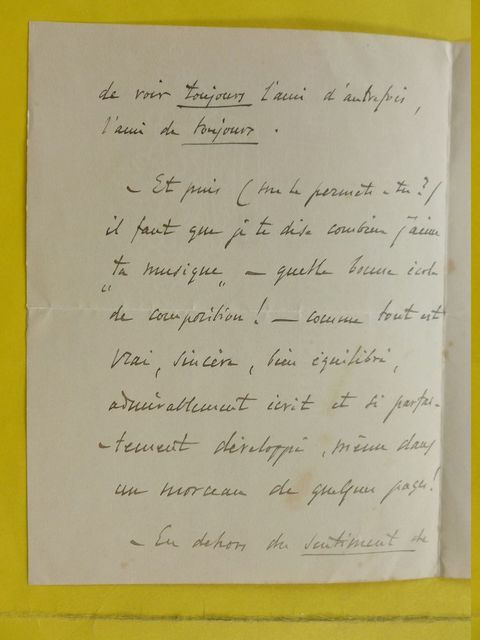 de voir toujours l'ami d'autrefois,
l'ami de toujours.
– Et puis (me le permets-tu?)
il faut que je te dise combien j'aime
"ta musique" – quelle bonne école
de composition! – comme tout est
vrai, sincère, bien équilibré,
admirablement écrit et si parfai-
-tement développé, même dans
un morceau de quelques pages!
– En dehors du sentiment de